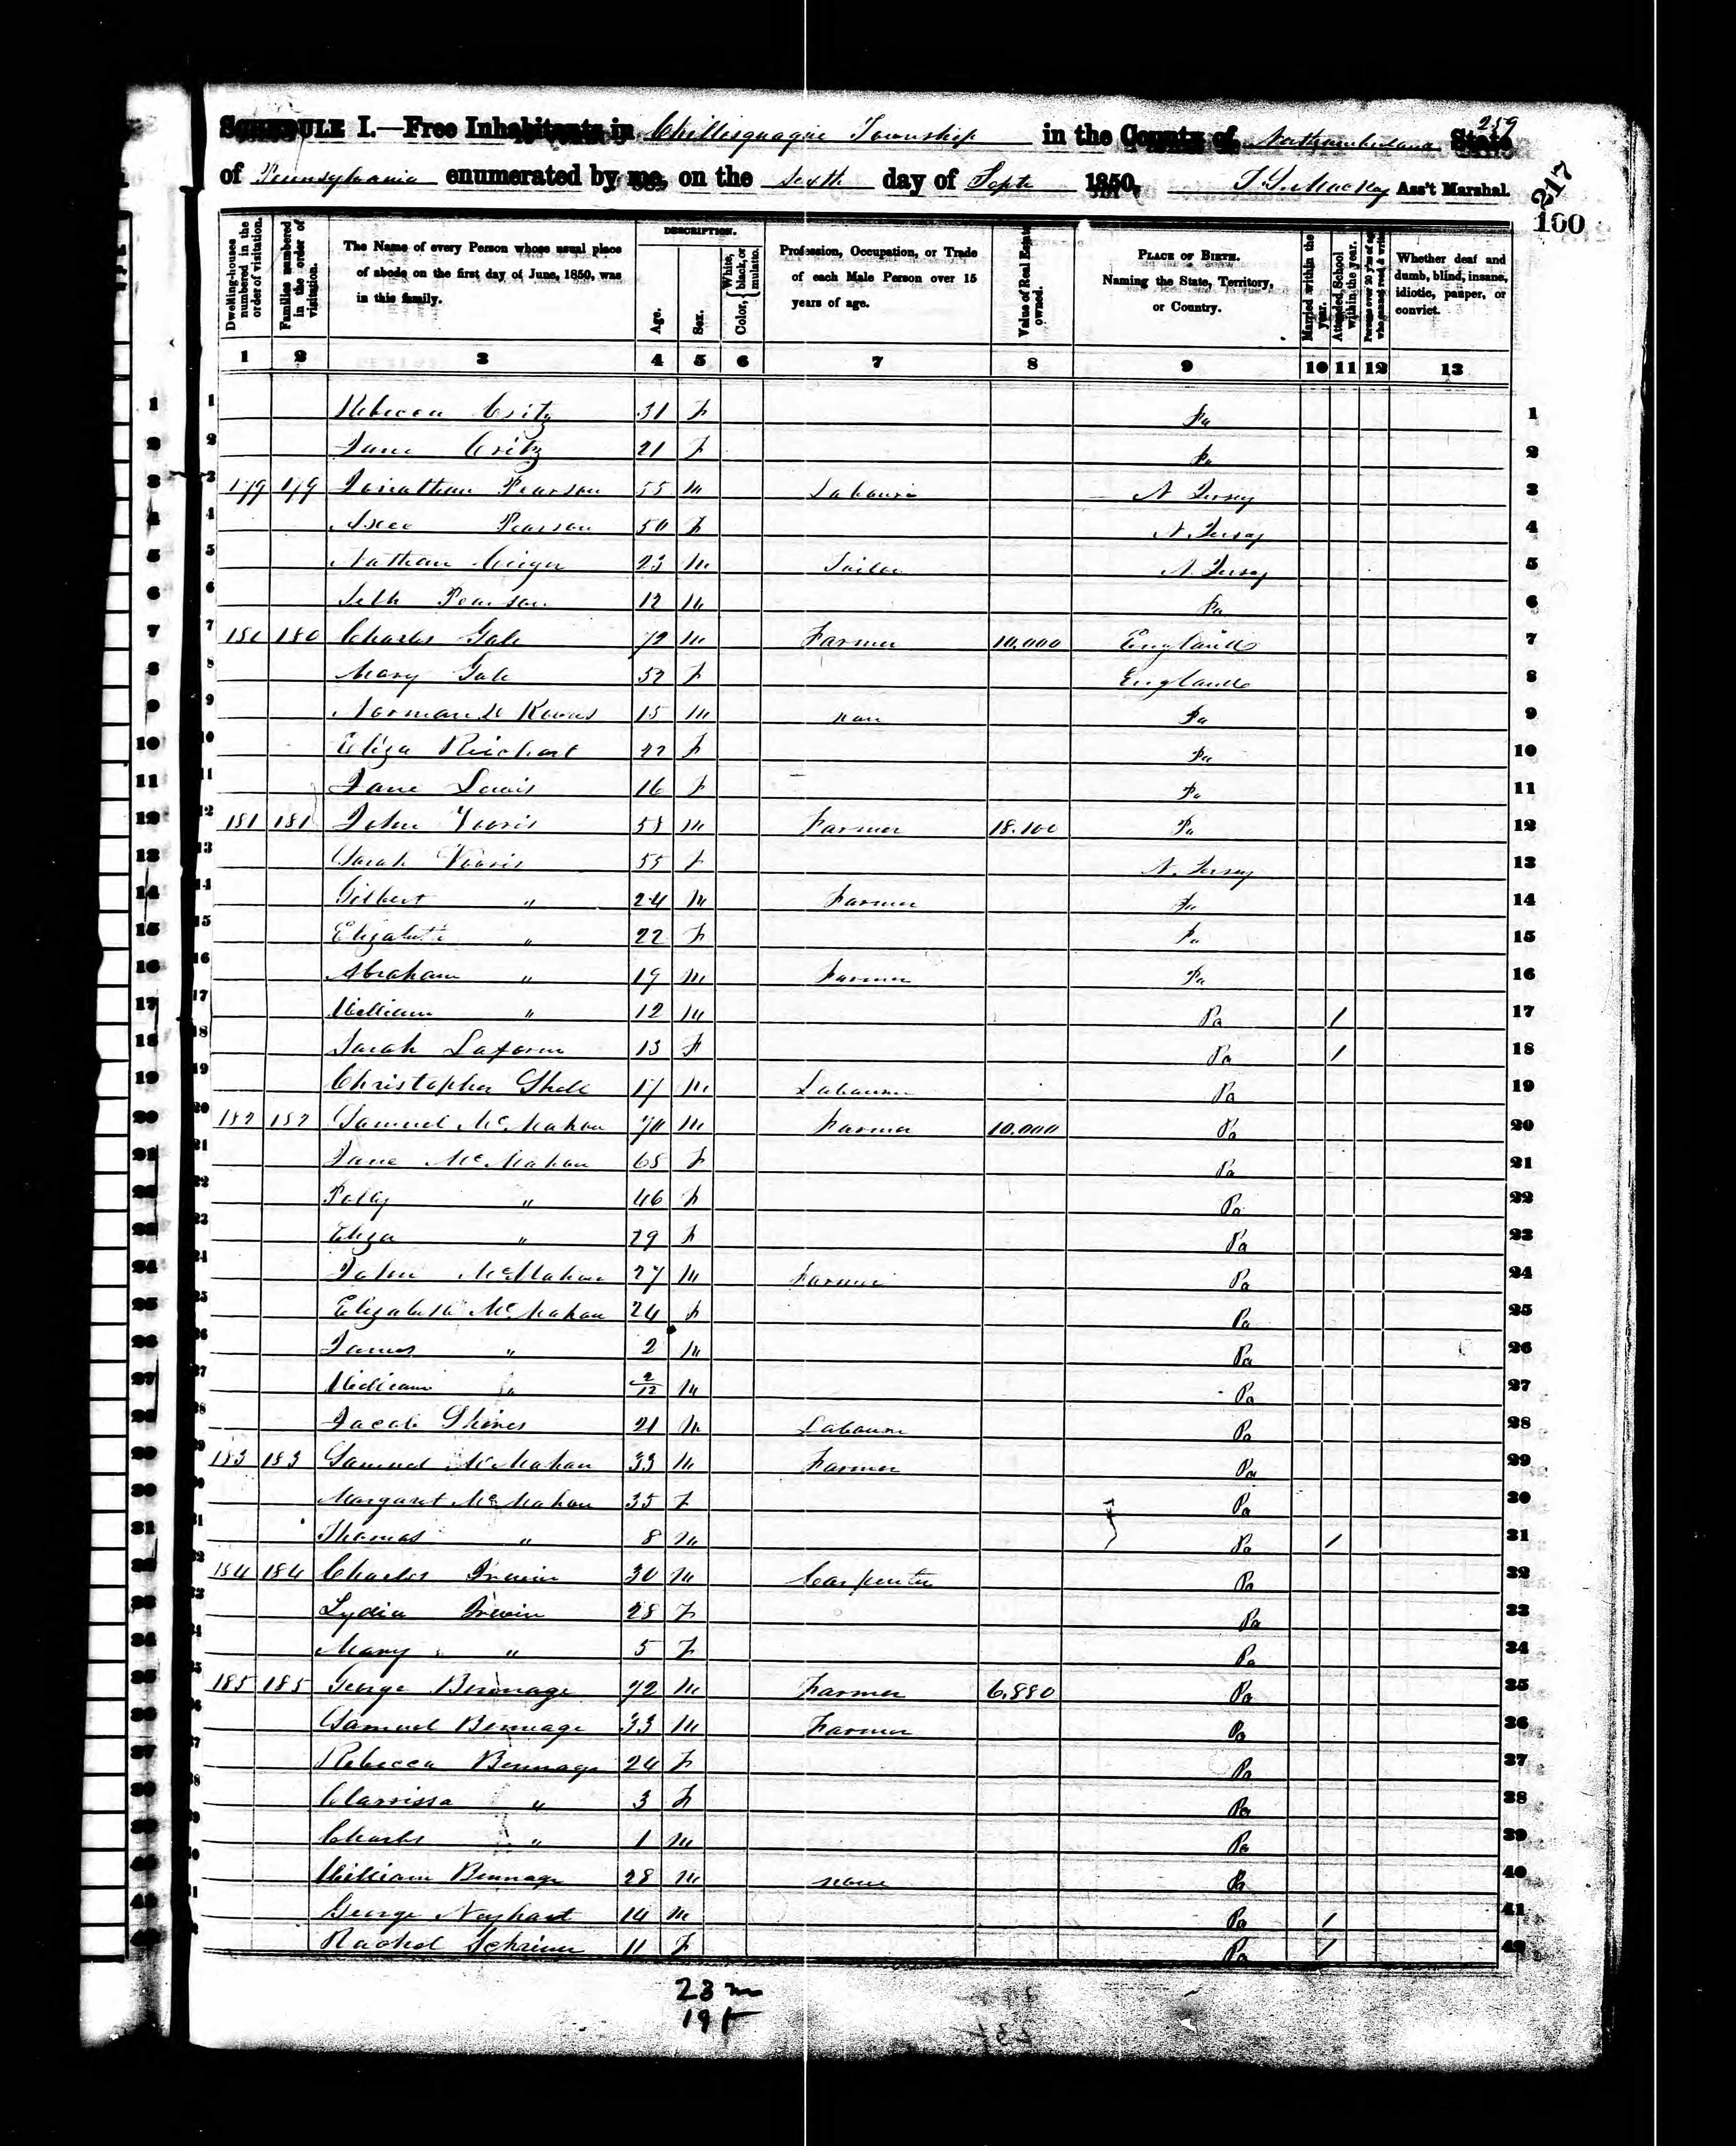 259
SCHEDULE I.—Free Inhabitants in Chillisquaque Township in the County of Northumberland State
of Pennsylvania enumerated by me, on the Sixth day of Septr 1850. Ass't Marshal.
217
160
DESCRIPTION.
Dwelling-houses numbered in the order of visitation.
Families numbered in the order of visitation.
The Name of every Person whose usual place of abode on the first day of June, 1850, was in this family.
Age.
Sex.
Color, White, black, or mulatto.
Profession, Occupation, or Trade of each Male Person over 15 years of age.
Value of Real Estate owned.
PLACE OF BIRTH. Naming the State, Territory, or Country.
Married within the year.
Attended School within the year.
Persons over 20 y'rs of age who cannot read & write.
Whether deaf and dumb, blind, insane, idiotic, pauper, or convict.
1 2 3 4 5 6 7 8 9 10 11 12 13
1 Rebecca Critz 31 F Pa 1
2 Jane Critz 21 F Pa 2
3 179 179 Jonathan Pearson 55 M Labourer N Jersey 3
4 Pearson 50 F N. Jersey 4
5 Nathan 23 M Tailor N. Jersey 5
6 Seth Pearson 12 M Pa 6
7 180 180 Charles Gale 72 M Farmer 10.000 England 7
8 Mary Gale 52 F England 8
9 Norman 15 M Pa 9
10 Eliza Reichart 22 F Pa 10
11 Jane Lewis 16 F Pa 11
12 181 181 John Vooris 58 M Farmer 18.100 Pa 12
13 Sarah Vooris 55 F N. Jersey 13
14 Gilbert " 24 M Farmer Pa 14
15 Elizabeth " 22 F Pa 15
16 Abraham " 19 M Farmer Pa 16
17 William " 12 M Pa / 17
18 Sarah 13 F Pa / 18
19 Christopher 17 M Labourer Pa 19
20 182 182 Samuel McMahan 70 M Farmer 10.000 Pa 20
21 Jane McMahan 65 F Pa 21
22 Polly " 46 F Pa 22
23 Eliza " 29 F Pa 23
24 John McMahan 27 M Farmer Pa 24
25 Elizabeth McMahan 24 F Pa 25
26 James " 2 M Pa 26
27 William " 2/12 M Pa 27
28 Jacob 21 M Labourer Pa 28
29 183 183 Samuel McMahan 33 M Farmer Pa 29
30 Margaret McMahan 35 F Pa 30
31 Thomas " 8 M Pa / 31
32 184 184 Charles Irwin 30 M Carpenter Pa 32
33 Lydia Irwin 28 F Pa 33
34 Mary " 5 F Pa 34
35 185 185 George Bennage 72 M Farmer 6.880 Pa 35
36 Samuel Bennage 33 M Farmer Pa 36
37 Rebecca Bennage 24 F Pa 37
38 Clarrissa " 3 F Pa 38
39 Charles " 1 M Pa 39
40 William Bennage 28 M None Pa 40
41 George Nayhart 14 M Pa / 41
42 Rachel Schriner 11 F Pa / 42
23 m
19 f